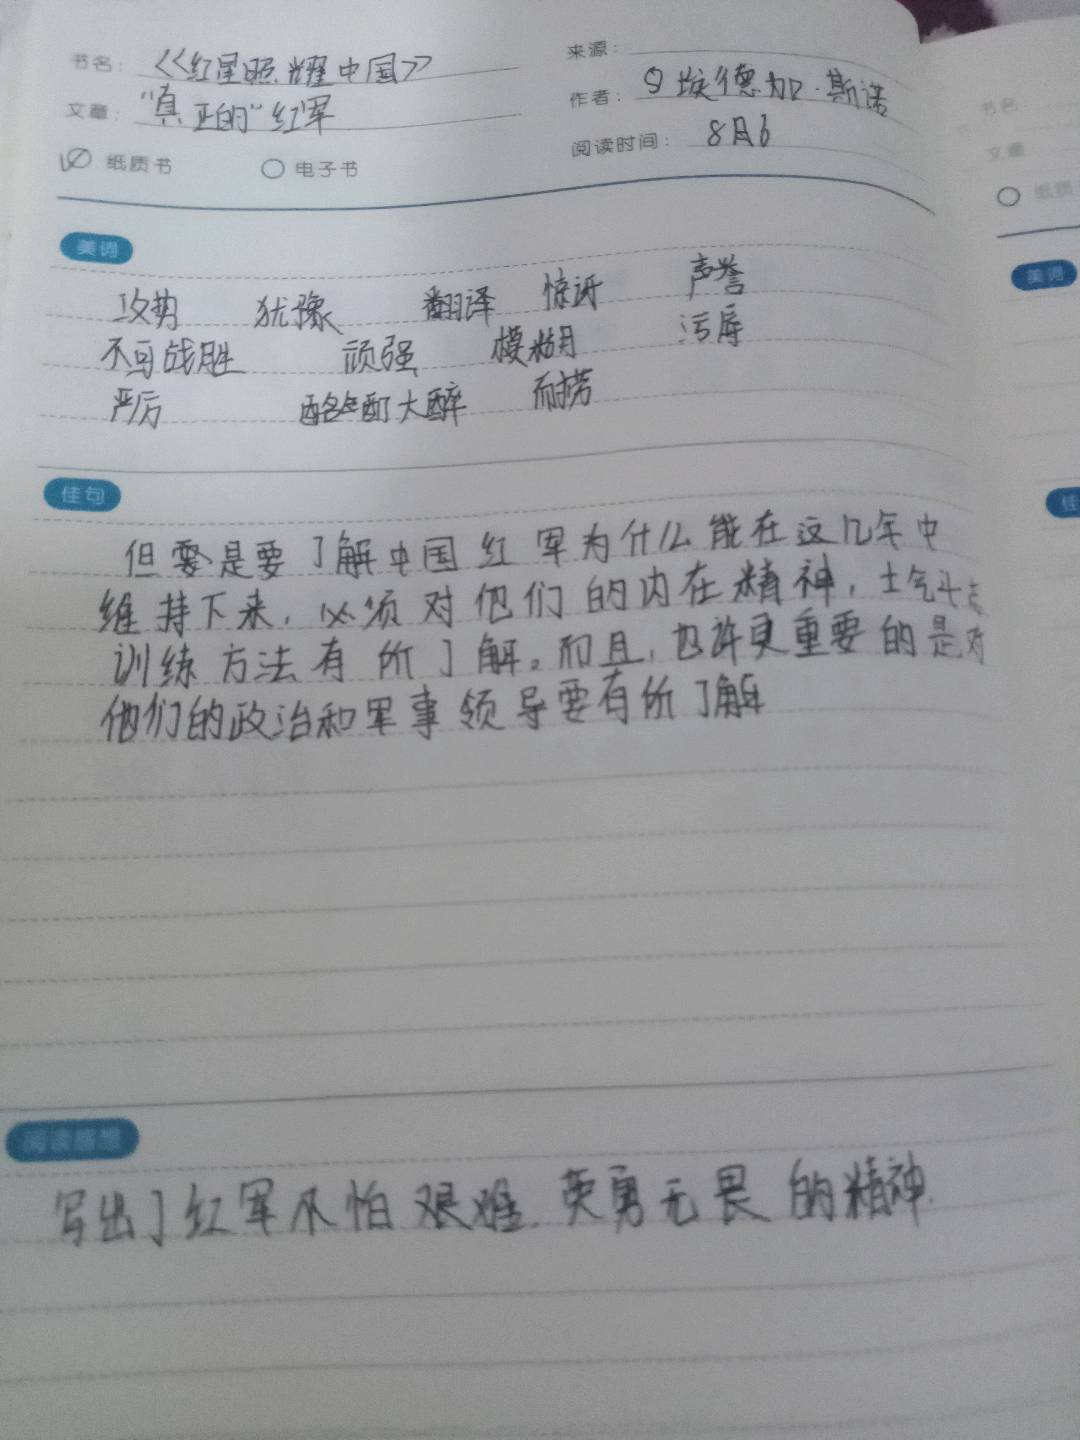 书名：《红星照耀中国》
来源：
文章："真正的"红军
作者：埃德加·斯诺
纸质书 电子书
阅读时间：8月6
美词
攻势 犹豫 翻译 惊讶 声誉
不可战胜 顽强 模糊 污辱
严厉 酩酊大醉 耐劳
佳句
但是要了解中国红军为什么能在这几年中
维持下来，必须对他们的内在精神，士气斗志
训练方法有所了解。而且，也许更重要的是对
他们的政治和军事领导要有所了解
阅读感想
写出了红军不怕艰难.英勇无畏的精神.
书名
文章
纸质
美词
佳